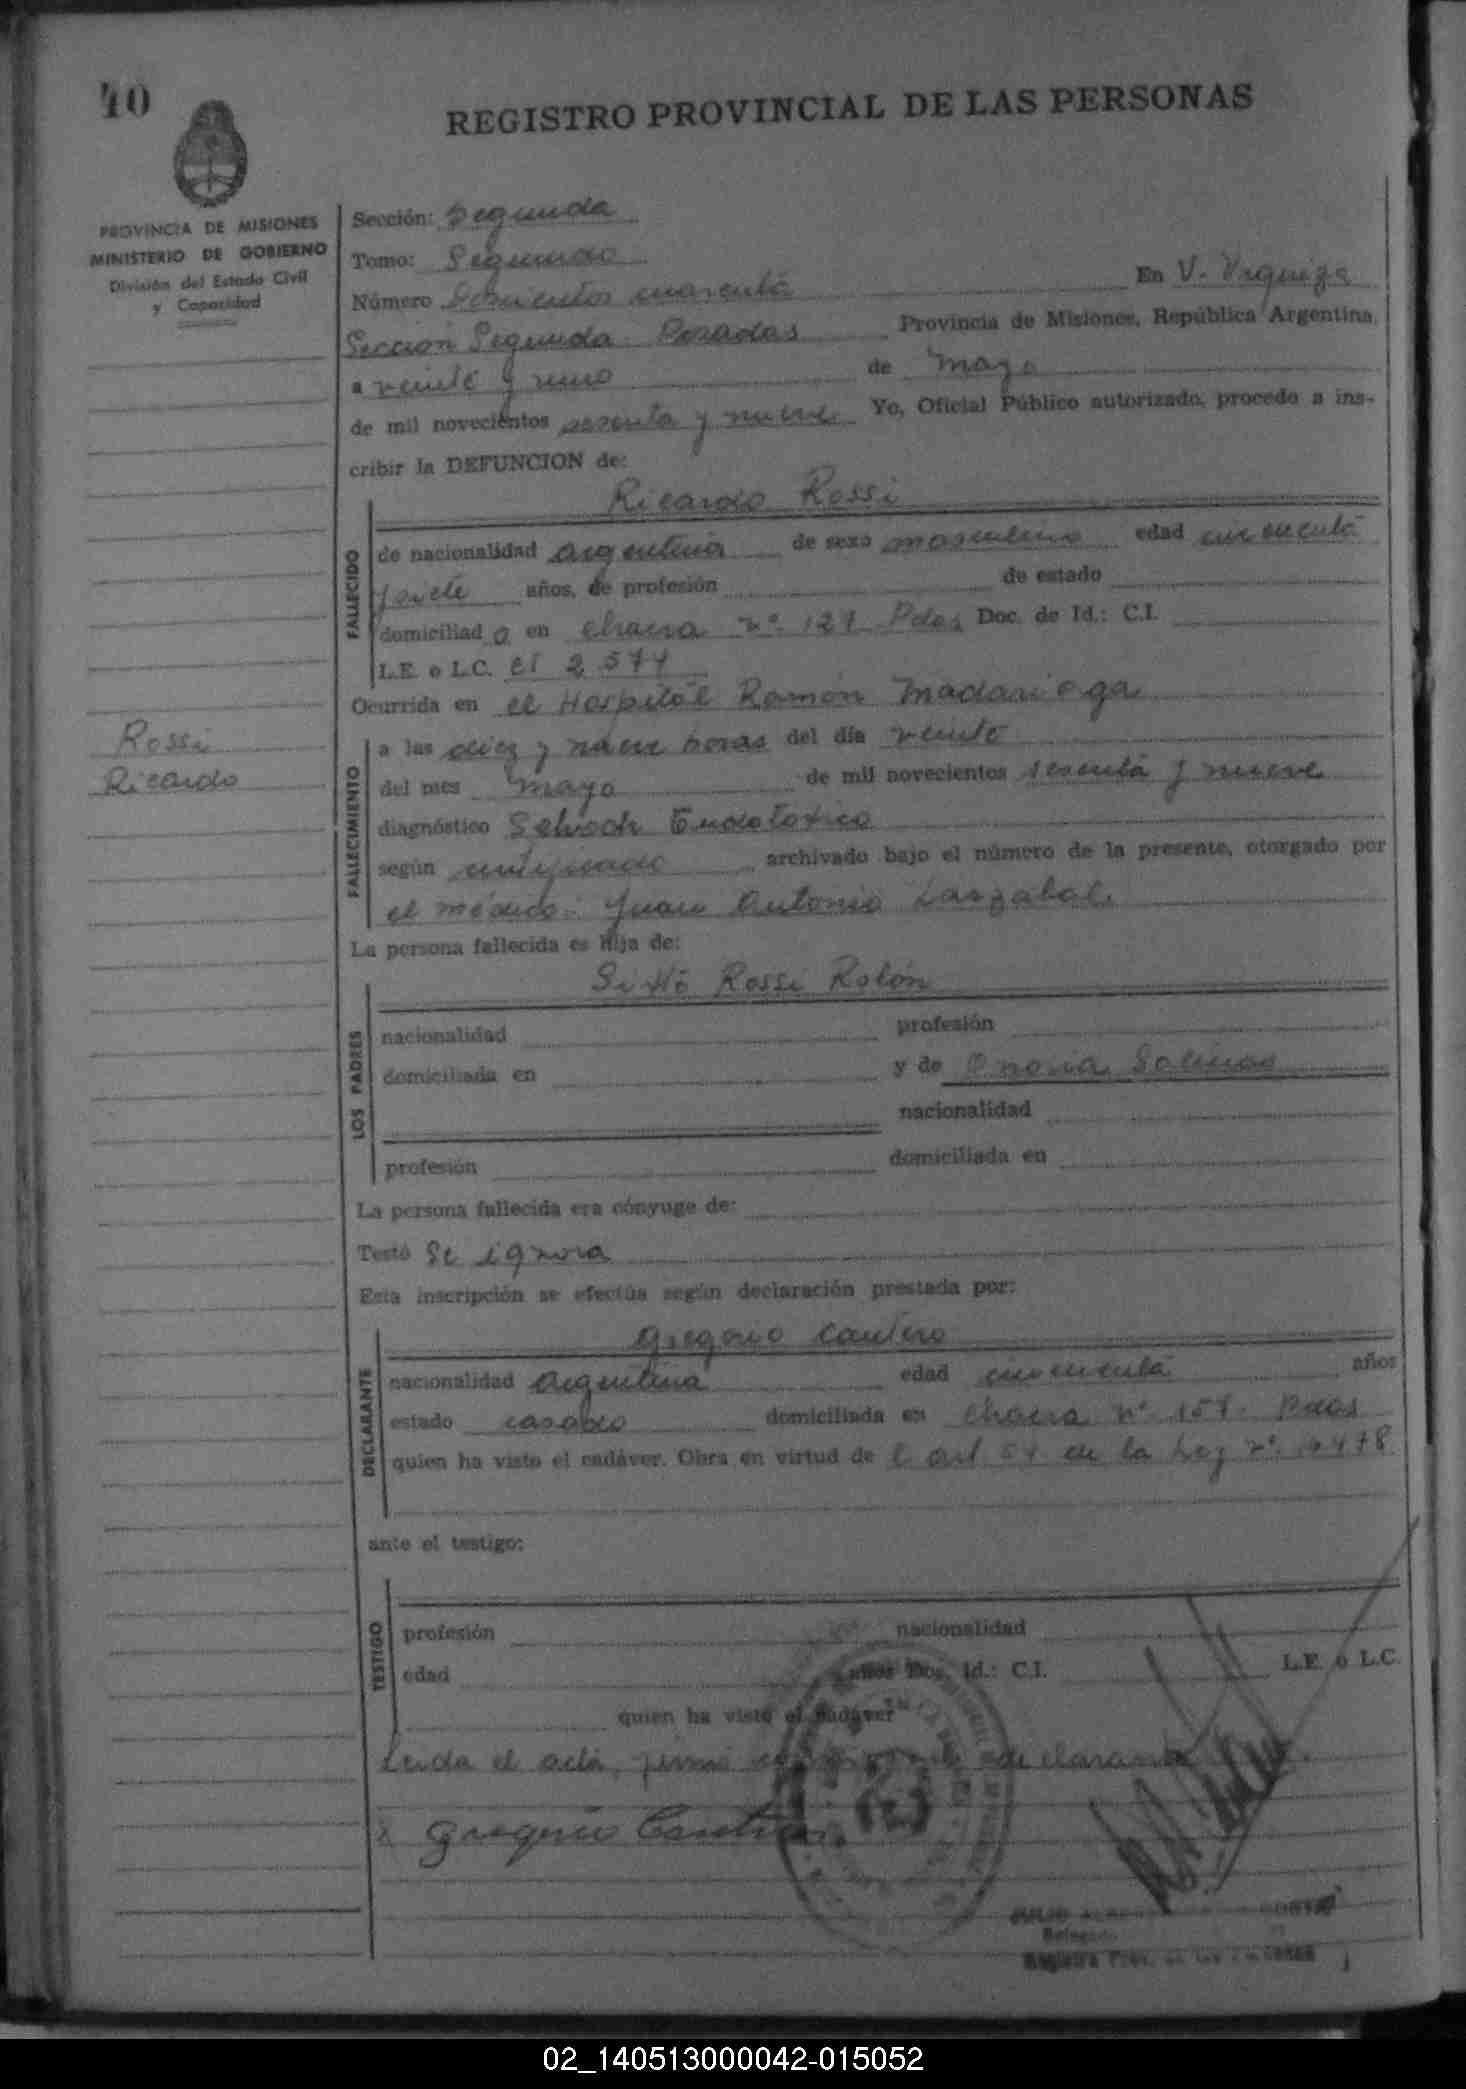 40
REGISTRO PROVINCIAL DE LAS PERSONAS
PROVINCIA DE MISIONES
MINISTERIO DE GOBIERNO
División del Estado Civil
y Capacidad
Sección: Segunda
Tomo: Segundo
Número cuarenta
En V. Urquiza
Sección Segunda Posadas Provincia de Misiones, República Argentina,
a veinte y uno de Mayo
de mil novecientos sesenta y nueve Yo, Oficial Público autorizado, procedo a ins-
cribir la DEFUNCION de:
Ricardo Rossi
FALLECIDO
de nacionalidad argentina de sexo masculino edad cincuenta
y siete años, de profesión de estado
domiciliad o en chacra nº 127 Pdas Doc. de Id.: C.I.
L.E. o L.C. CI 2.574
Ocurrida en el Hospital Ramón Madariaga
Rossi
Ricardo
FALLECIMIENTO
a las diez y nueve horas del día veinte
del mes mayo de mil novecientos sesenta y nueve
diagnóstico Schock Endotoxico
según certificado archivado bajo el número de la presente, otorgado por
el médico: Juan Antonio Larzabal.
La persona fallecida es hija de:
Sixto Rossi Rolón
LOS PADRES
nacionalidad profesión
domiciliada en y de Salinas
nacionalidad
profesión domiciliada en
La persona fallecida era cónyuge de:
Testó Se ignora
Esta inscripción se efectúa según declaración prestada por:
Gregorio Cantero
DECLARANTE
nacionalidad Argentina edad cincuenta años
estado casado domiciliada en Chacra nº 157. Pdas
quien ha visto el cadáver. Obra en virtud de l art. de la Ley nº
ante el testigo:
TESTIGO
profesión nacionalidad
edad años Doc. Id.: C.I. L.E. o L.C.
quien ha visto el cadáver
Leida el acta, firmó declarante
Gregorio Cantero
JULIO
Delegado
Registro Prov. de las Personas
02_140513000042-015052